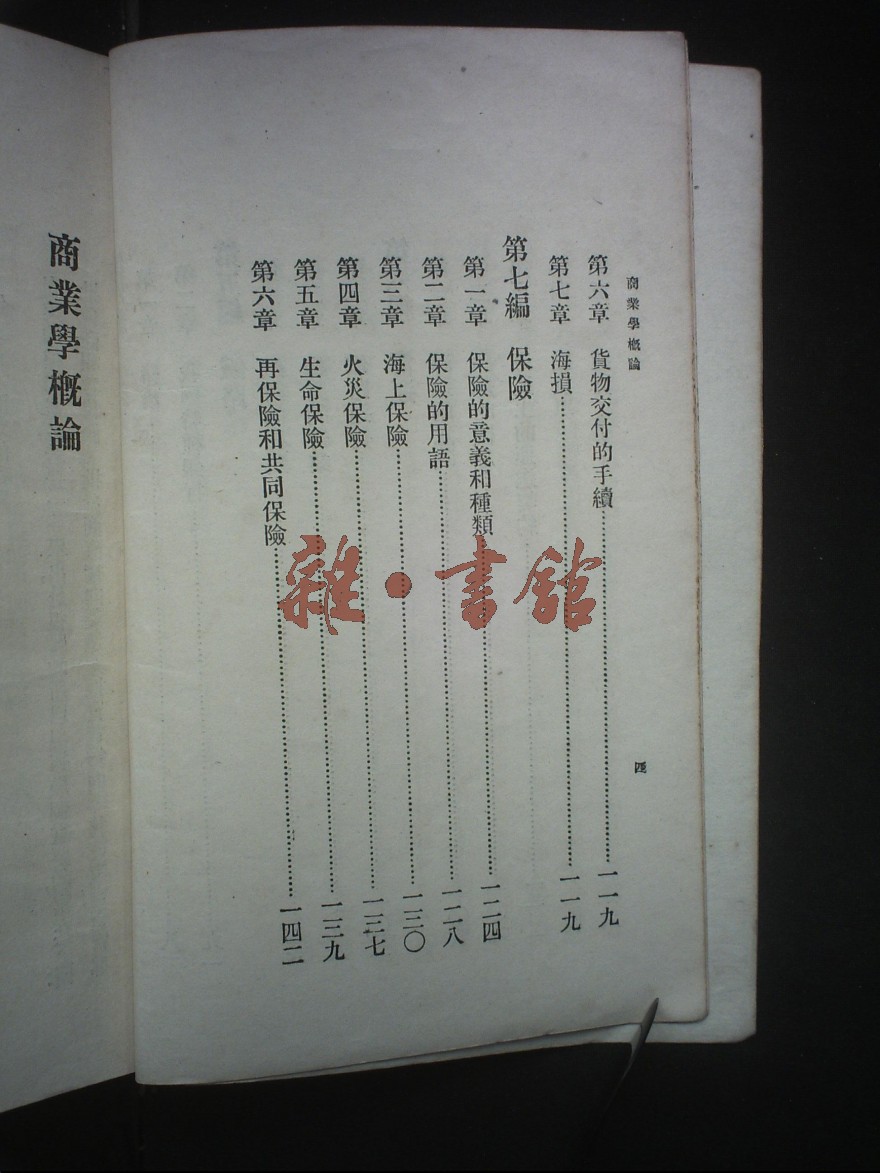 商業學概論
四
第六章 貨物交付的手續……一一九
第七章 海損……一一九
第七編 保險
第一章 保險的意義和種類……一二四
第二章 保險的用語……一二八
第三章 海上保險……一三〇
第四章 火災保險……一三七
第五章 生命保險……一三九
第六章 再保險和共同保險……一四二
商業學概論
雜·書館